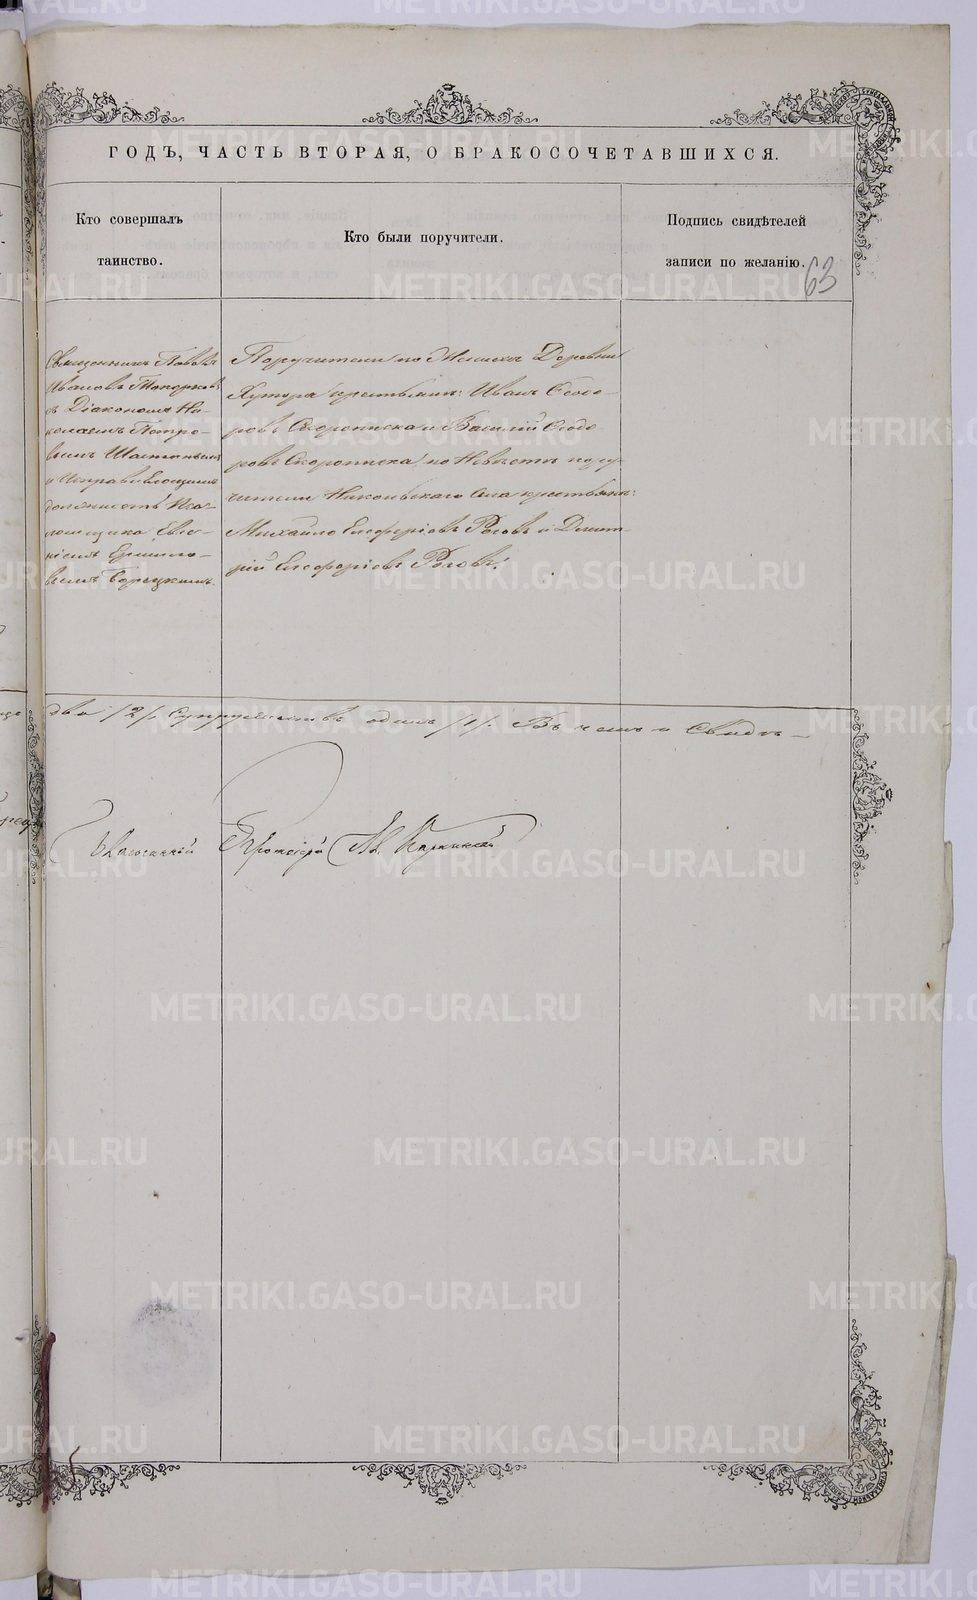 ГОДЪ, ЧАСТЬ ВТОРАЯ, О БРАКОСОЧЕТАВШИХСЯ.
Кто совершалъ
таинство.
Кто были поручители.
Подпись свидѣтелей
записи по желанію.
63
Священникъ Павелъ
Ивановъ Топорковъ
съ Діакономъ Ни-
колаемъ Петро-
вымъ
и Исправляющимъ
должность Пса-
ломщика Евге-
ніемъ
вымъ
Поручители по Женихѣ Деревни
Хутора крестьяне: Иванъ Ѳедо-
ровъ Скорописка и Василій Ѳедо-
ровъ Скорописка, по Невѣстѣ пору-
чители Никольскаго села крестьяне:
Михайло Елеферіевъ Роговъ и Дмит-
рій Елеферіевъ Роговъ.
два /2/ Супружествъ одинъ /1/. Въ чемъ и Свидѣ-
Благочинный Протоіерей
METRIKI.GASO-URAL.RU